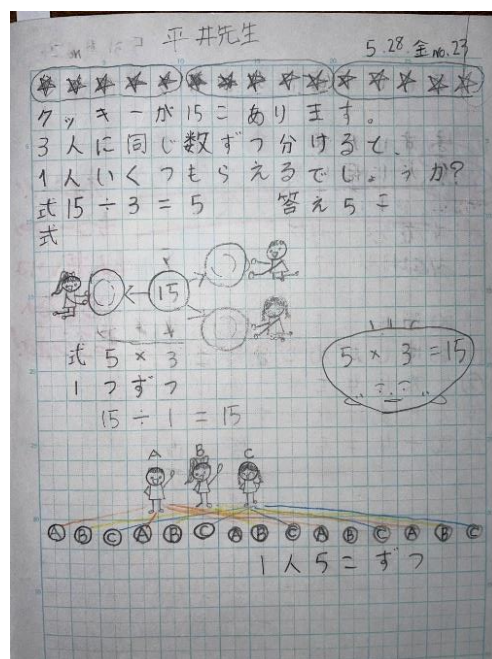 平井先生
5.28.金 no.23
クッキーが15こあります。
3人に同じ数ずつ分けると、
1人いくつもらえるでしょうか?
式15÷3=5 答え5こ
式
15
式 5×3
5×3=15
1つずつ
15÷1=15
A B C
A B C A B C A B C A B C A B C
1人5こずつ